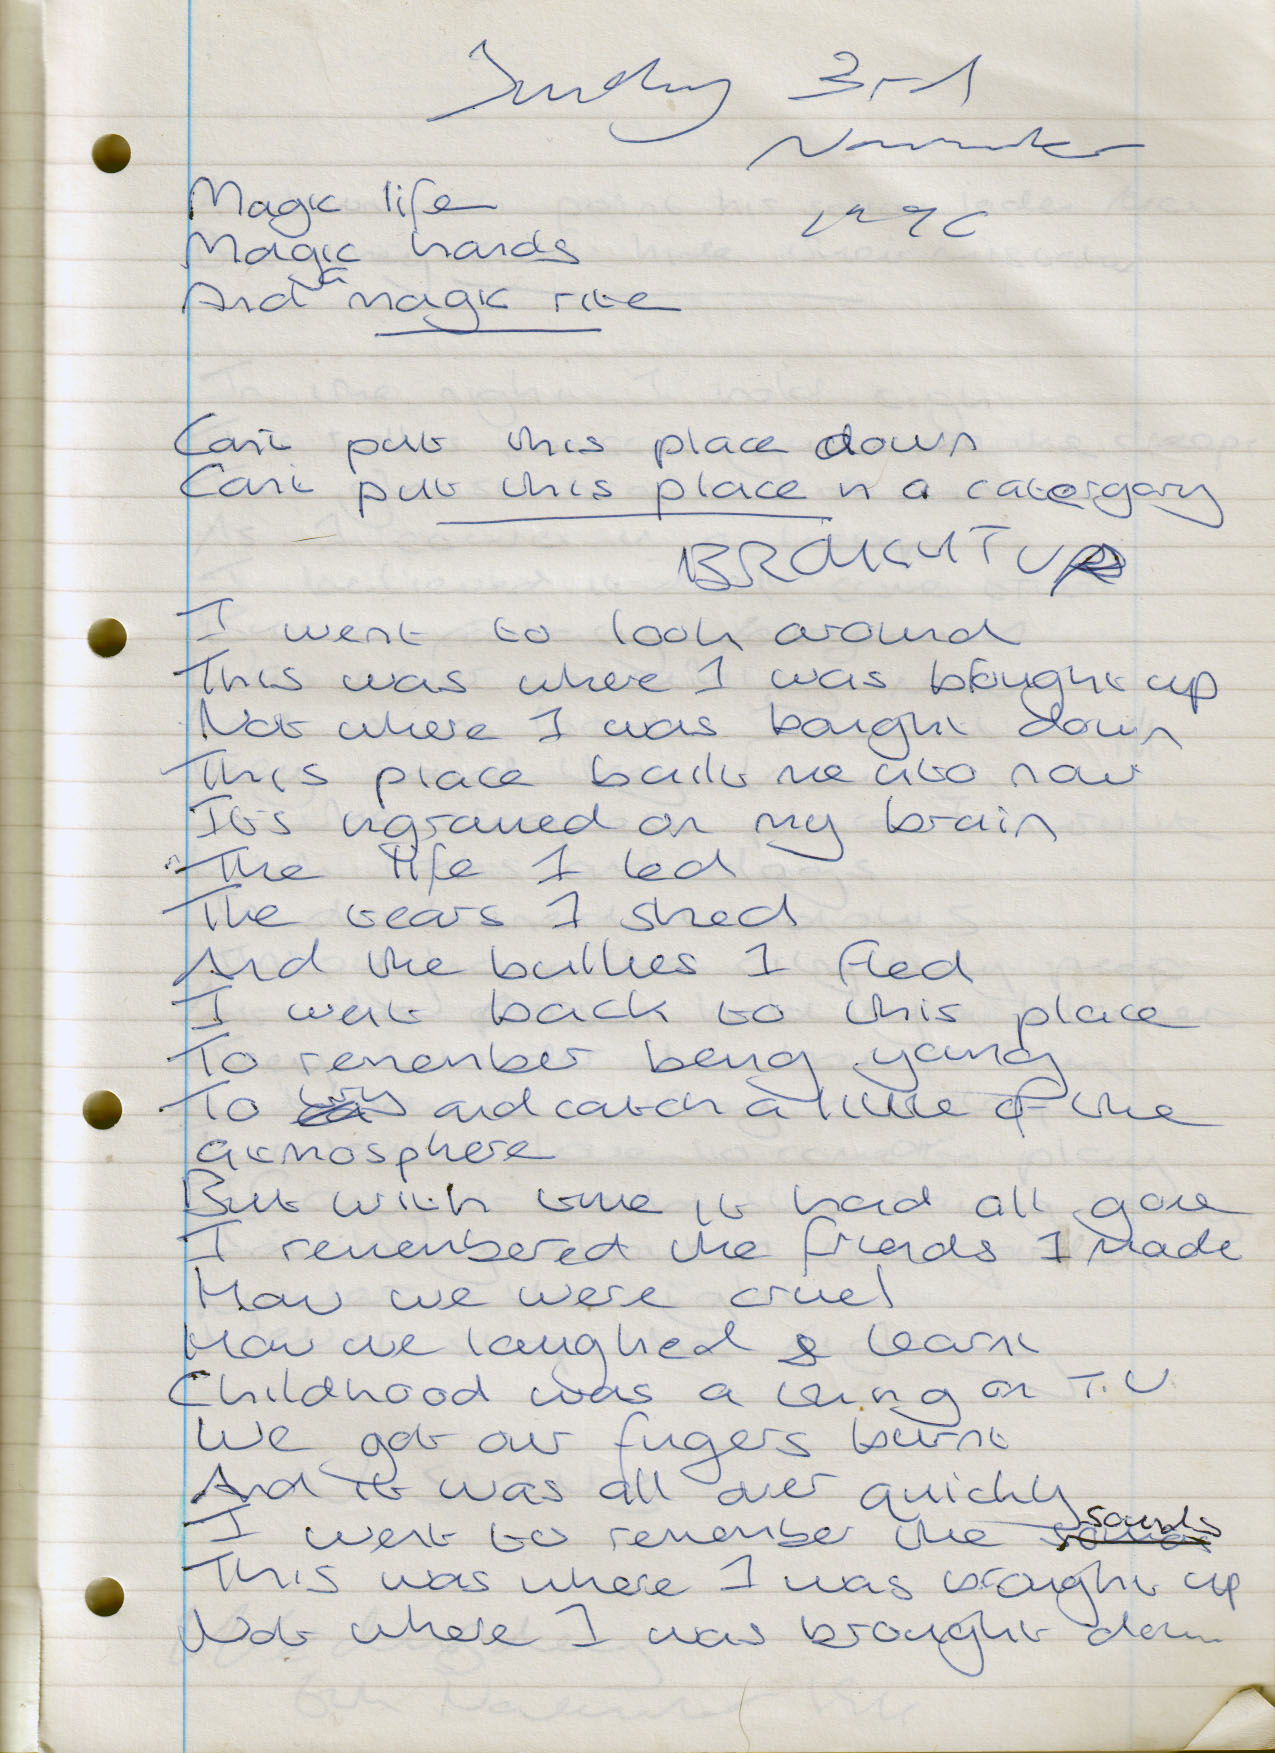 Sunday 3rd
November
1996
Magic life
Magic hands
And a magic rite
Cant put this place down
Cant put this place in a catergory
BROUGHT UP
I went to look around
This was where I was brought up
Not where I was bought down
This place built me into now
It's ingraved on my brain
The life I led
The tears I shed
And the bullies I fled
I went back to this place
To remember being young
To try and catch a little of the
atmosphere
But with time it had all gone
I remembered the friends I made
How we were cruel
How we laughed & learnt
Childhood was a thing on T.V
We got our fingers burnt
And it was all over quickly
I went to remember the sounds
This was where I was brought up
Not where I was brought down